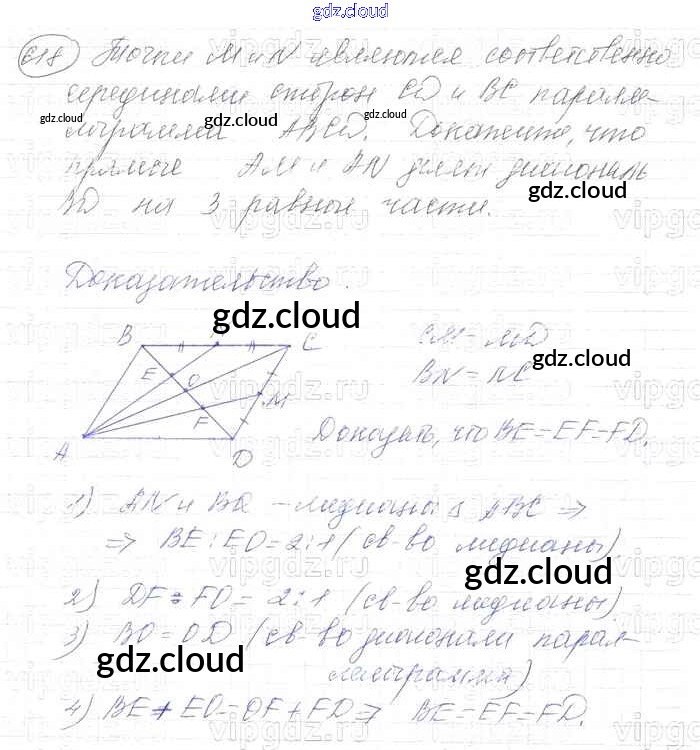 gdz.cloud
618) Точки M и N являются соответственно
серединами сторон CD и BC паралле-
лограмма ABCD. Докажите, что
прямые AM и AN делят диагональ
BD на 3 равные части.
gdz.cloud
gdz.cloud
gdz.cloud
gdz.cloud
Доказательство.
gdz.cloud
B C
E O M
F
A D
CM = MD
gdz.cloud
BN = NC
Доказать, что BE = EF = FD.
1) AN и BO - медианы Δ ABC ⇒
⇒ BE : EO = 2:1 (св-во медианы)
gdz.cloud
2) DF : FO = 2:1 (св-во медианы)
3) BO = OD (св-во диагонали парал-
gdz.cloud
лелограмма)
4) BE + EO = OF + FD ⇒ BE = EF = FD.